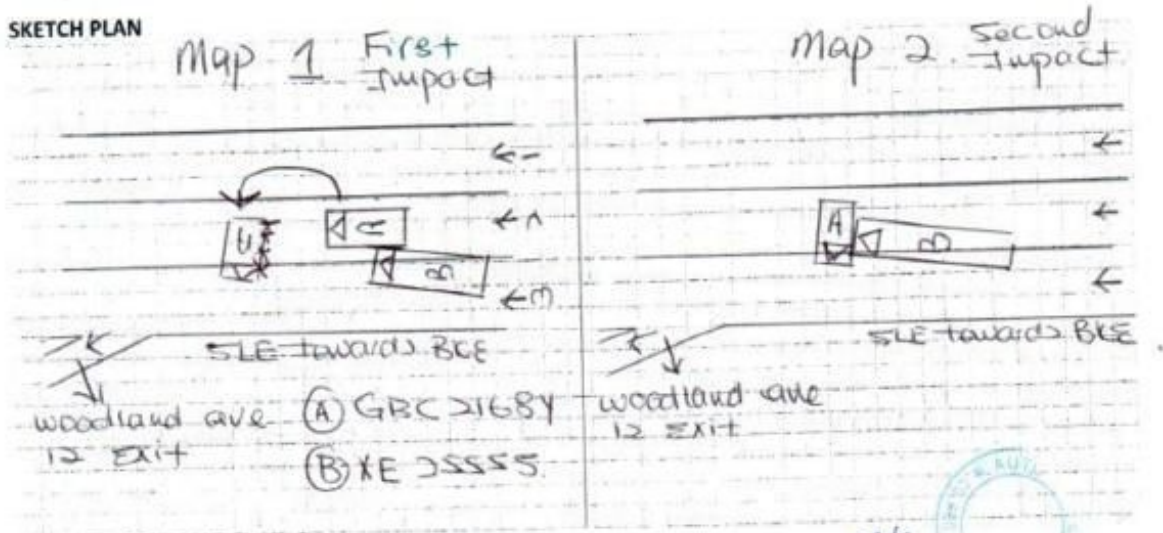 SKETCH PLAN
Map 1 First Impact
SLE towards BKE
woodland ave
12 Exit
(A) GBC 2168Y
(B) XE 2555S
A
B
Map 2. Second Impact
A
B
SLE towards BKE
woodland ave
12 Exit